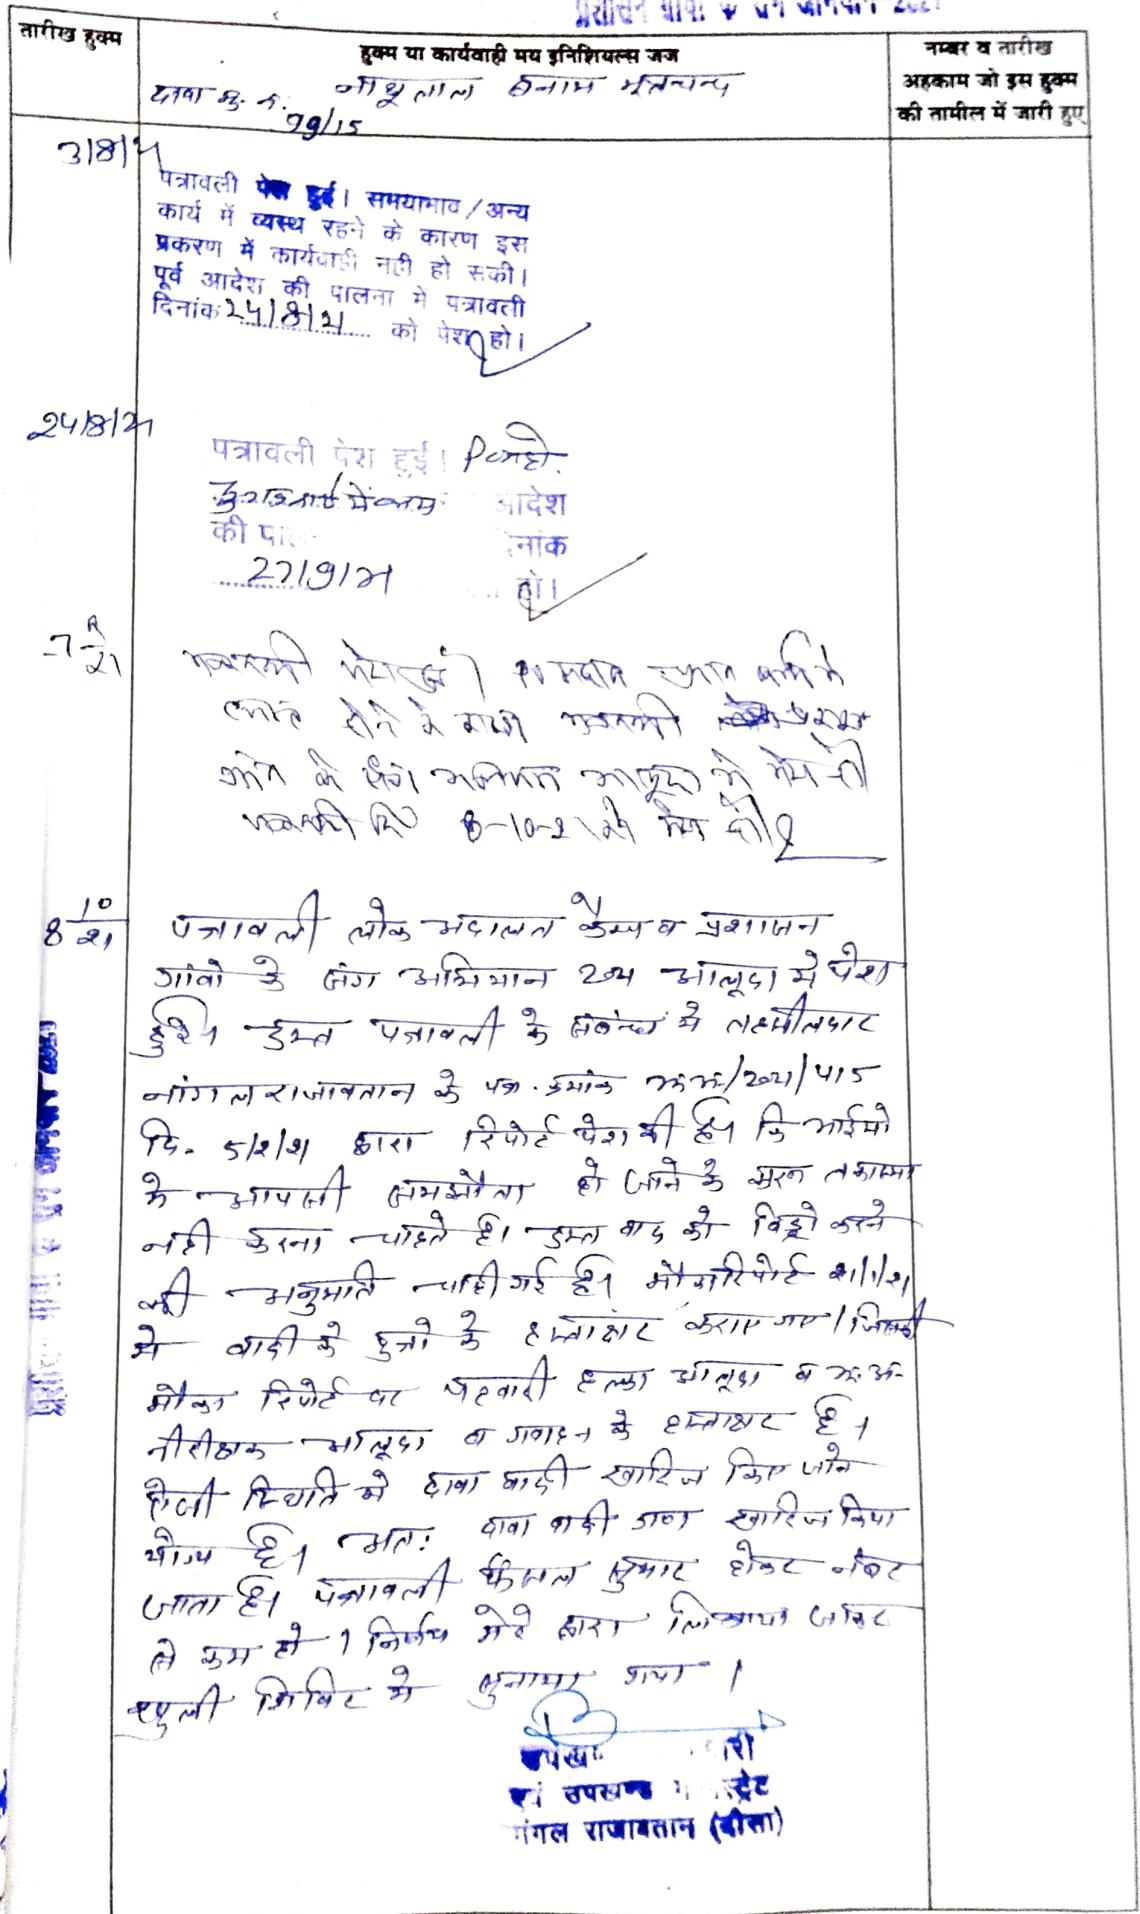 प्रशासन गांवों के संग अभियान 2021
तारीख हुक्म
हुक्म या कार्यवाही मय इनिशियल्स जज
नम्बर व तारीख
अहकाम जो इस हुक्म
की तामील में जारी हुए
दावा मु. नं. नाथूलाल बनाम मूलचन्द
99/15
3/8/21
पत्रावली पेश हुई। समयाभाव/अन्य
कार्य में व्यस्थ रहने के कारण इस
प्रकरण में कार्यवाही नही हो सकी।
पूर्व आदेश की पालना में पत्रावली
दिनांक 24/8/21 को पेश हो।
24/8/21
पत्रावली पेश हुई।
आदेश
की पा
नांक
27/9/21 हो।
पत्रावली पेश हुई।
होने से
के संग अभियान आलूदा में पेश हो
पत्रावली दि 8-10-21 को पेश हो।
8 10/21
पत्रावली लोक अदालत कैम्प व प्रशासन
गांवो के संग अभियान 2021 आलूदा मे पेश
हुई। उक्त पत्रावली के संबंध मे तहसीलदार
नांगल राजावतान के पत्र क्रमांक /2021/415
दि. 5/2/21 द्वारा रिपोर्ट पेश की है। कि भाईयो
के आपसी समझौता हो जाने के कारन तकासमा
नही करना चाहते है। उक्त वाद को विड्रो करने
की अनुमति चाही गई है। मौका रिपोर्ट 21/1/21
मे वादी के पुत्रो के हस्ताक्षर कराए गए। जिसकी
मौका रिपोर्ट पर पटवारी हल्का आलूदा व भू.अ.
नीरीक्षक आलूदा व गवाहन के हस्ताक्षर है।
ऐसी स्थिति मे दावा वादी खारिज किए जाने
योग्य है। अतः दावा वादी गण खारिज किया
जाता है। पत्रावली फैसल सुमार होकर नंबर
से कम हो। निर्णय मेरे द्वारा लिखाया जाकर
खुली शिविर मे सुनाया गया।
उपखण्ड
एवं उपखण्ड
नांगल राजावतान (दौसा)